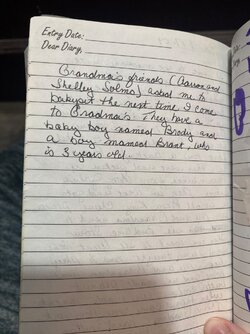 Entry Date:
Dear Diary,
Grandma's friends (Aaron and
Shelley Solms) asked me to
babysit the next time I come
to Gradmas. They have a
baby boy named Brody and
a boy mamed Brant, who
is 3 years old.